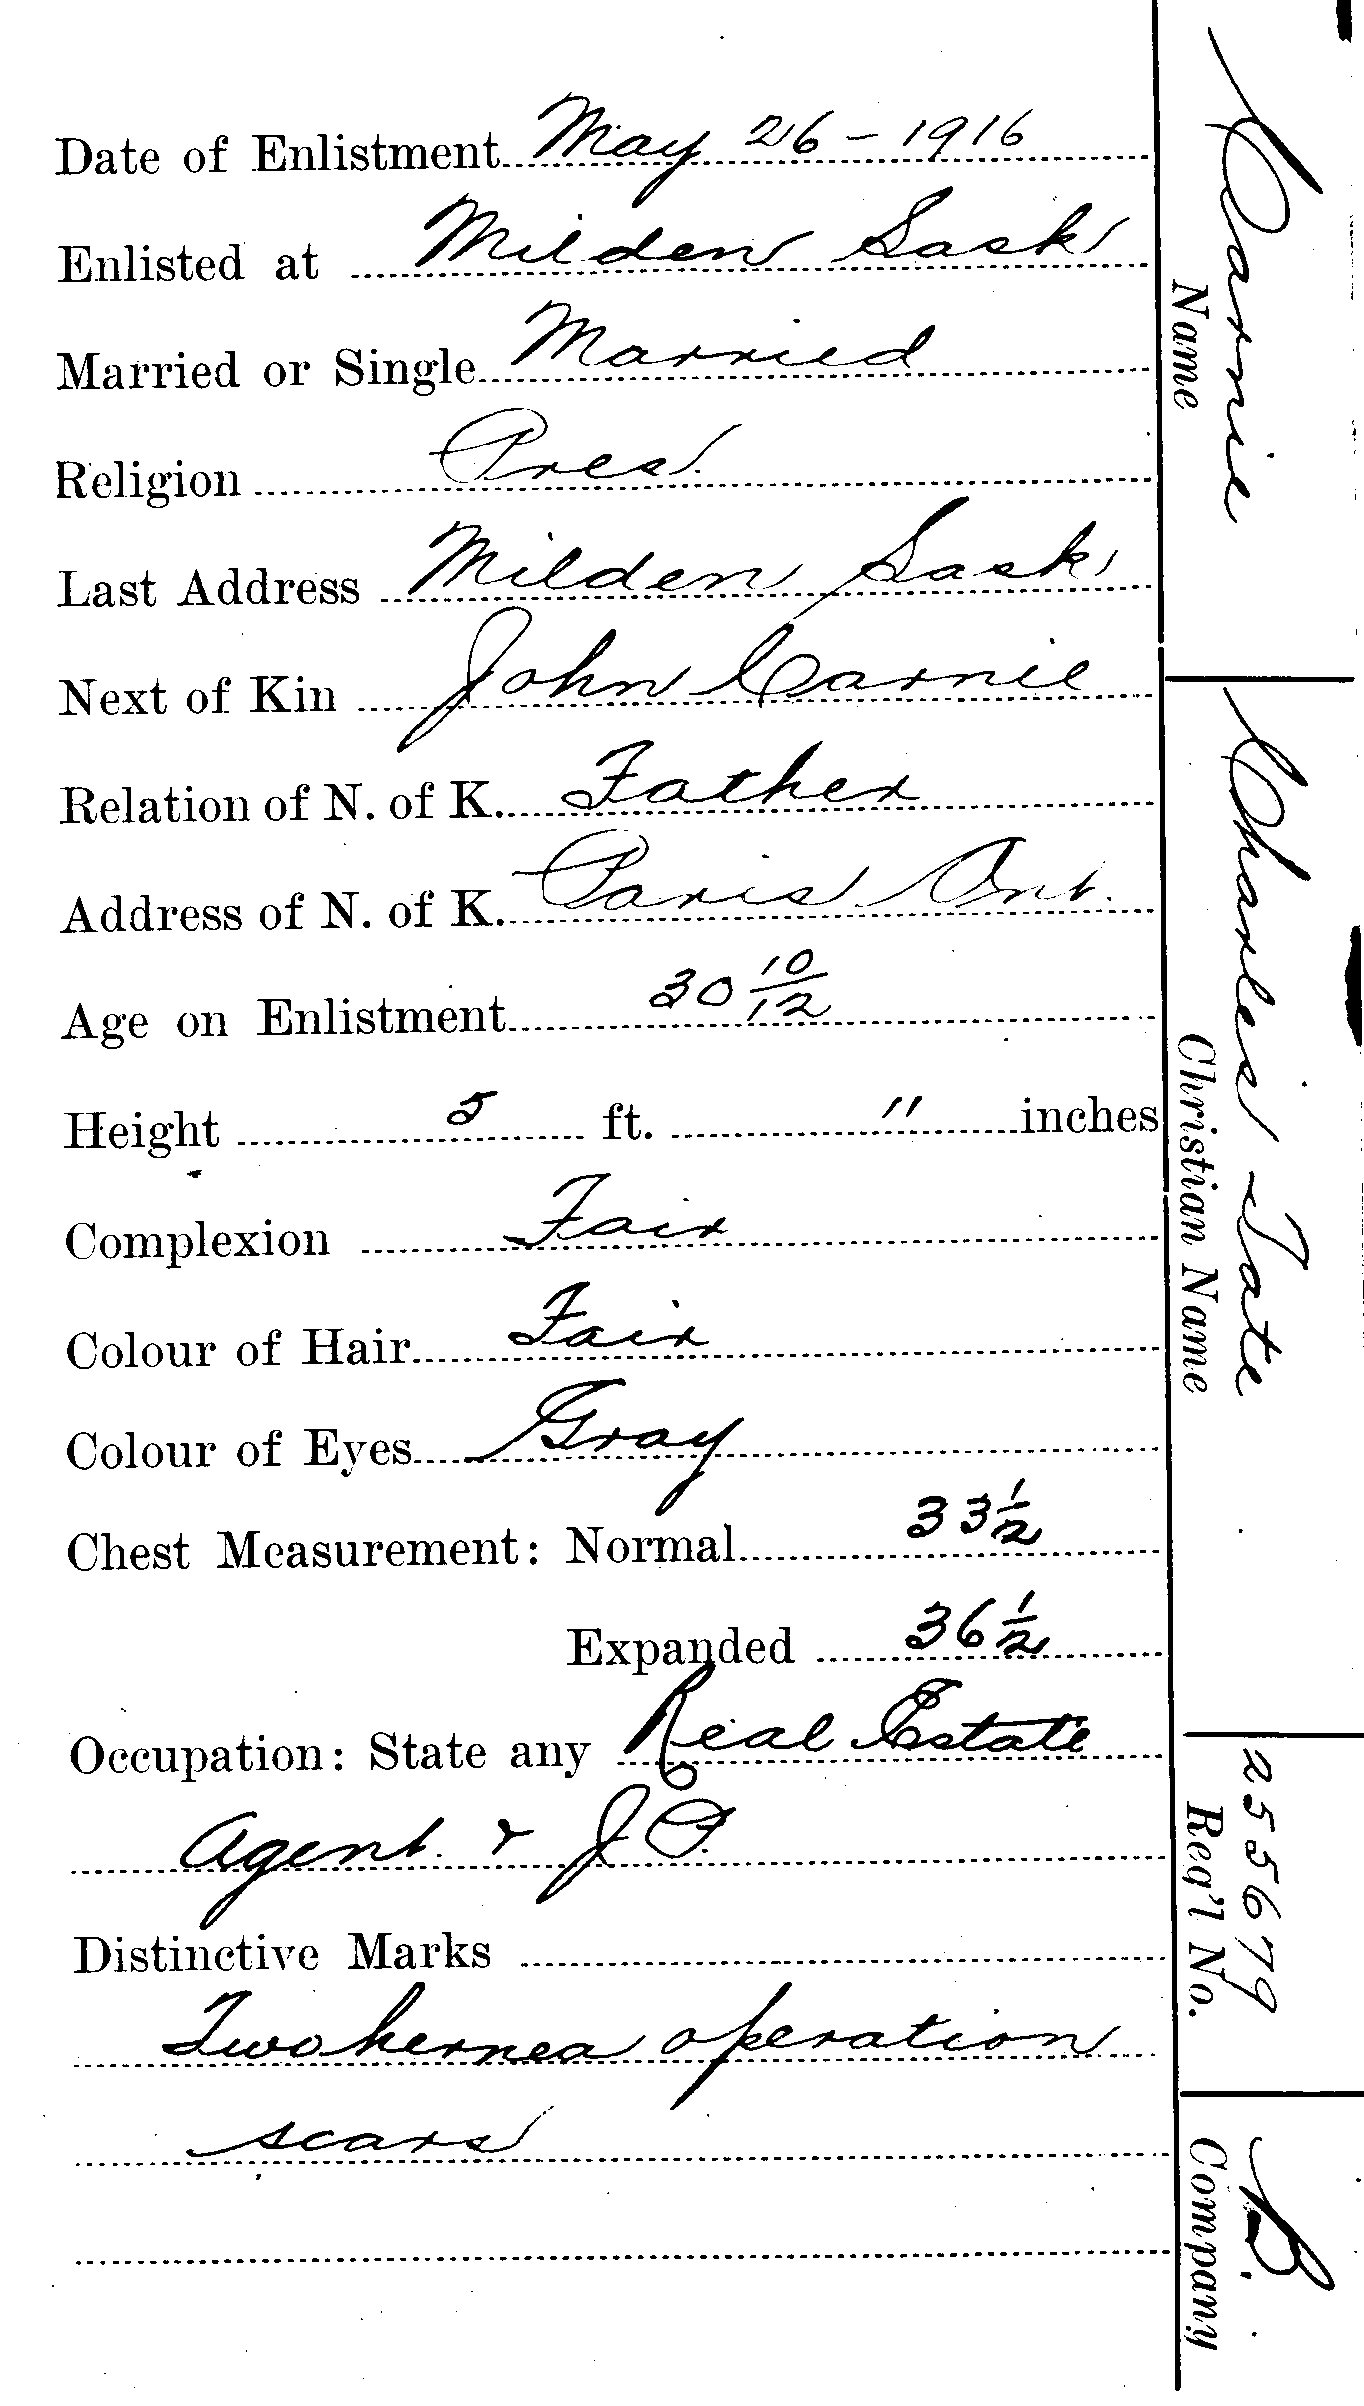 Date of Enlistment May 26 - 1916
Enlisted at Milden Sask
Married or Single Married
Religion Pres.
Last Address Milden Sask
Next of Kin John Carnie
Relation of N. of K. Father
Address of N. of K. Paris Ont.
Age on Enlistment 30 10/12
Height 5 ft. 11 inches
Complexion Fair
Colour of Hair Fair
Colour of Eyes Gray
Chest Measurement: Normal 33 1/2
Expanded 36 1/2
Occupation: State any Real Estate
Agent & J.P.
Distinctive Marks
Two hernea operation
scars
Carnie
Name
Charles Tate
Christian Name
255679
Reg'l No.
B.
Company